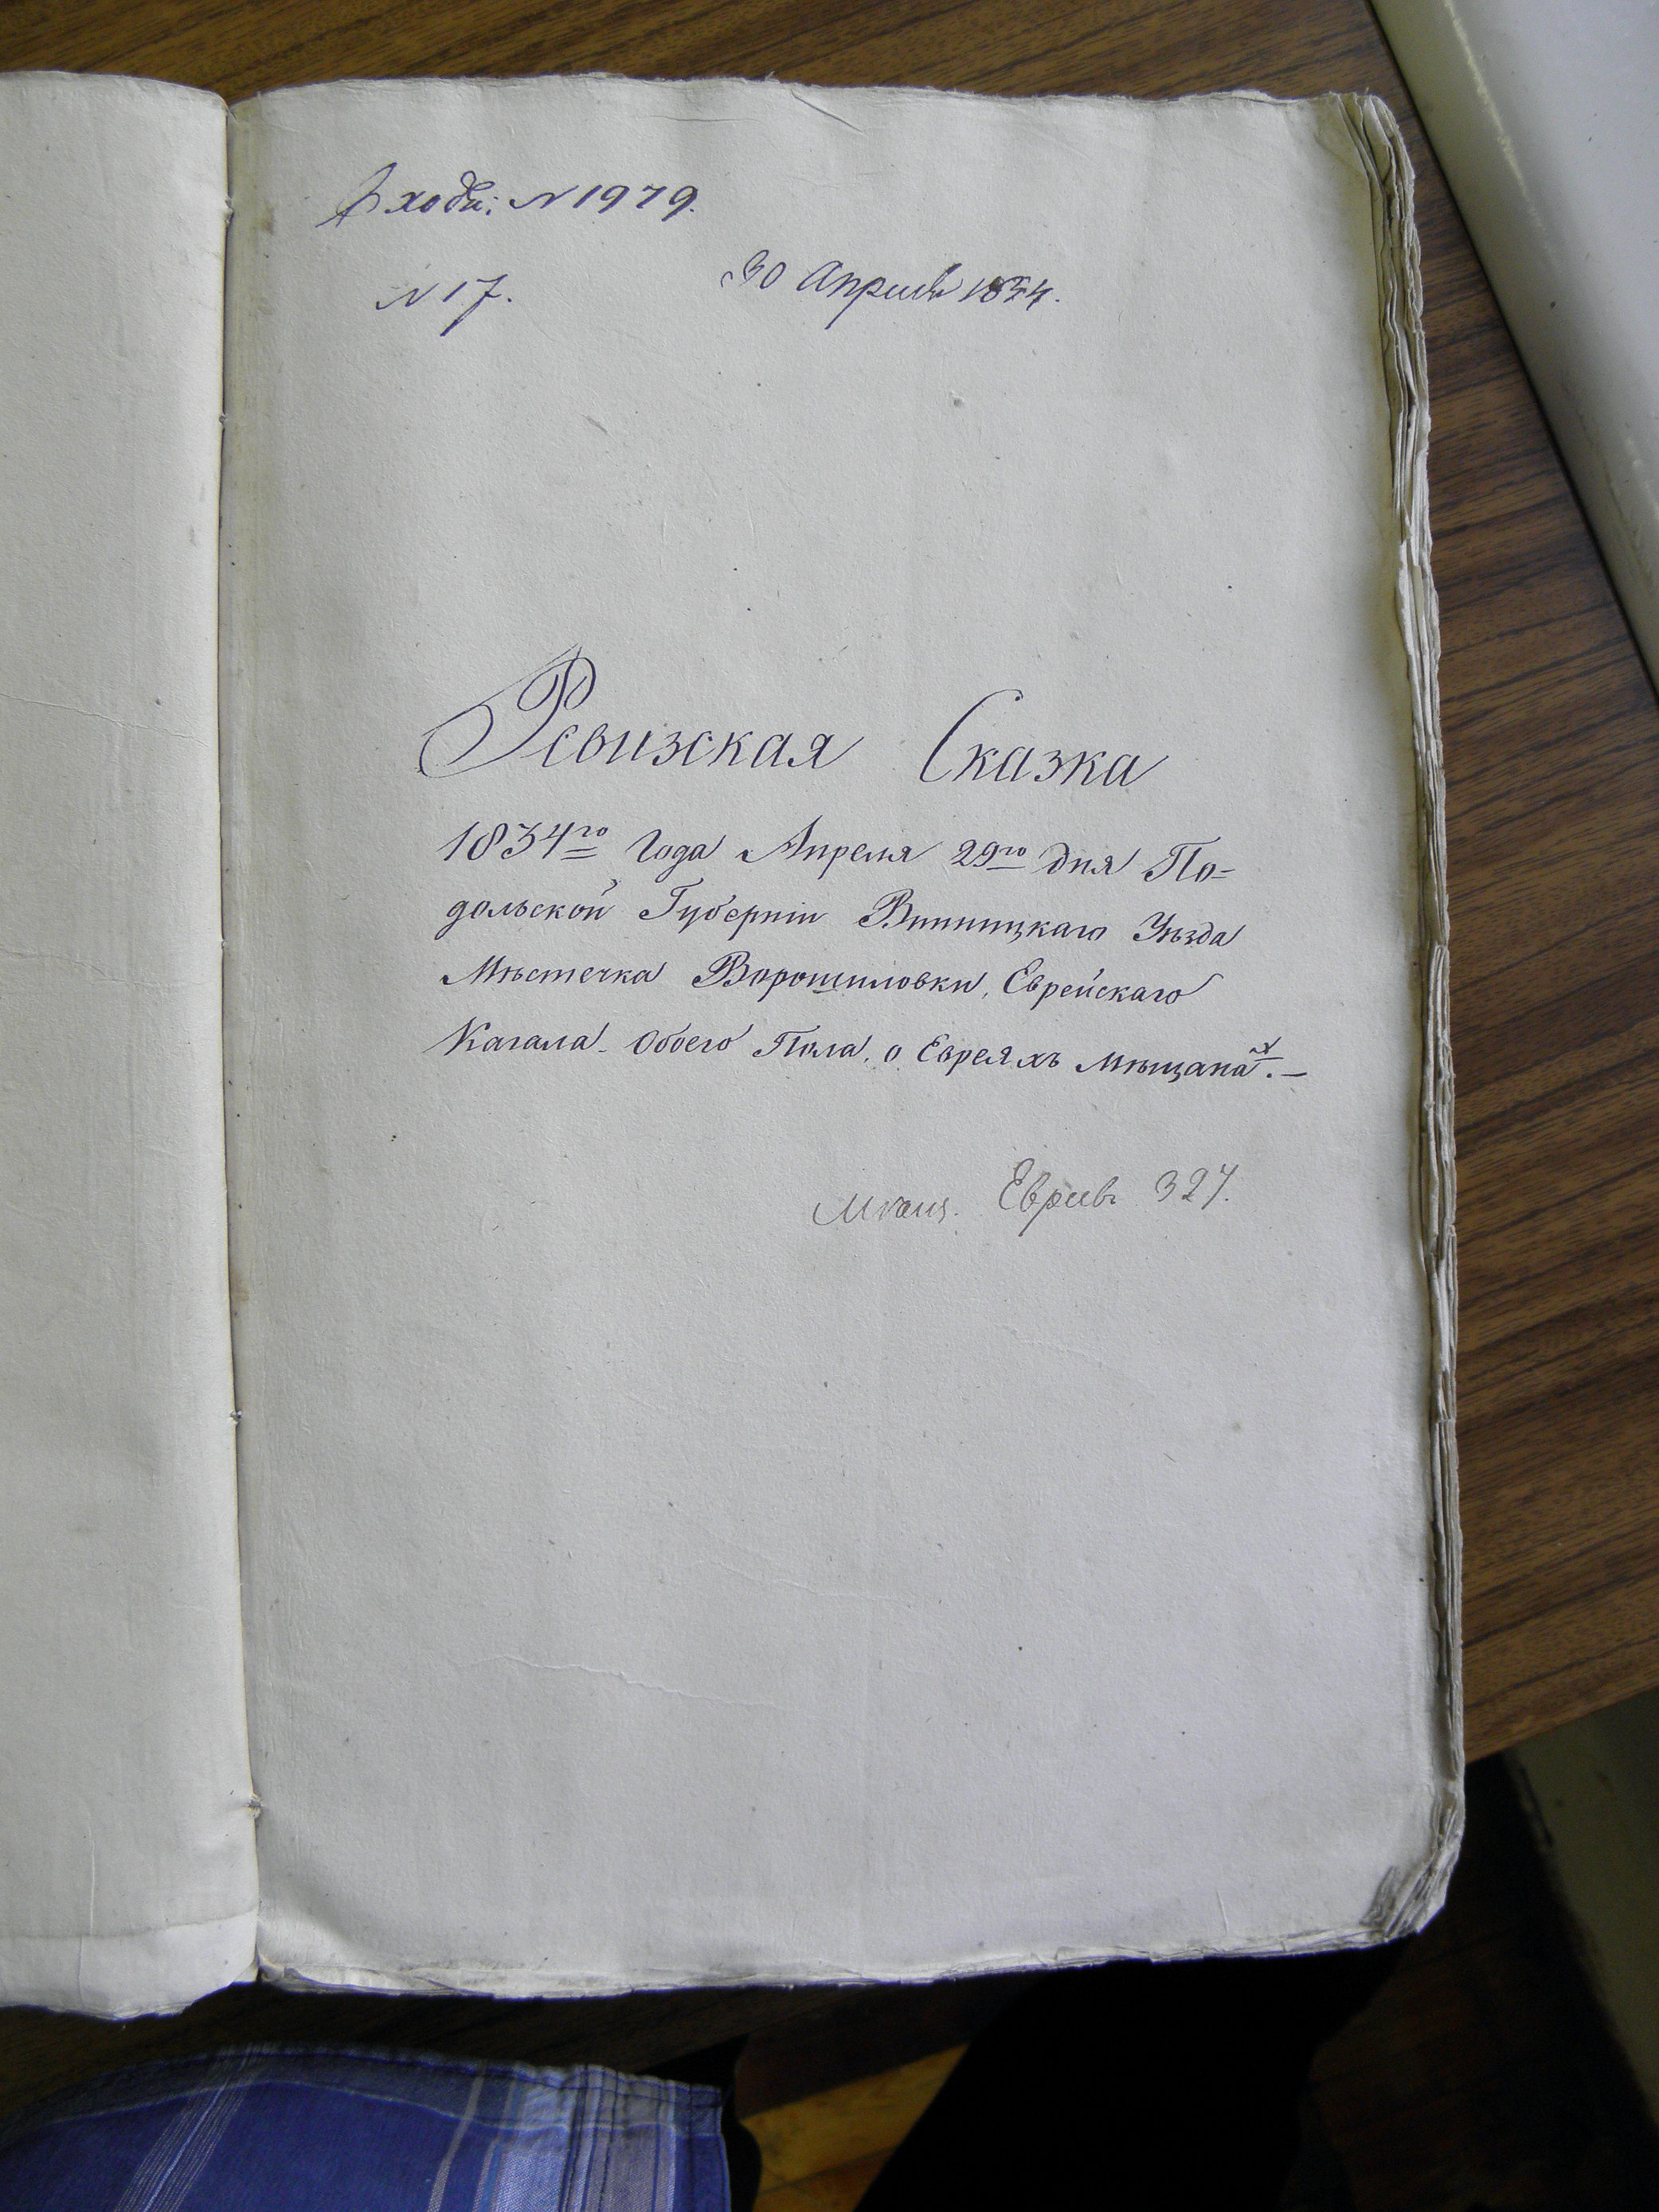 Входя: N 1979.
N 17. 30 Апреля 1834.
Ревизская Сказка
1834го Года Апреля 29го дня По=
дольской Губерніи Винницкаго Уѣзда
Мѣстечка Ворошиловки, Еврейскаго
Кагала Обоего Пола, о Евреяхъ мѣщанах.—
Мѣщ. Евреевъ 327.